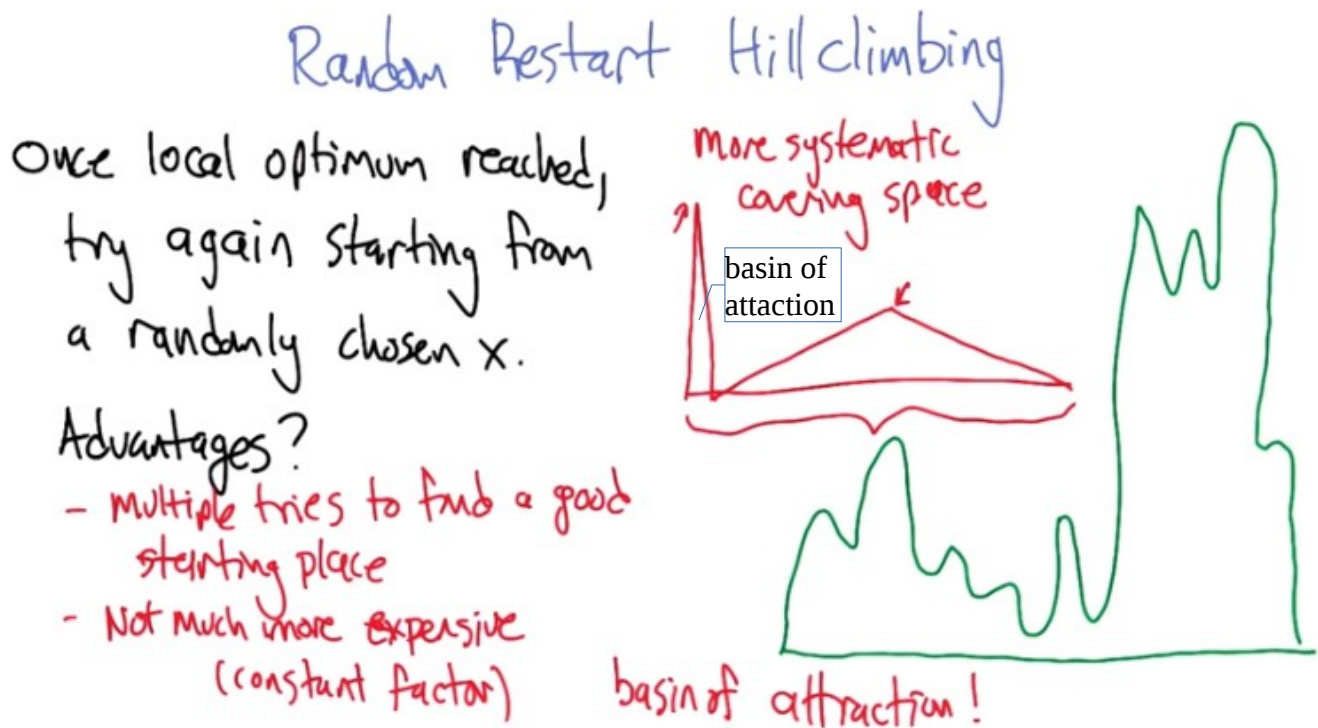 Random Restart Hillclimbing
Once local optimum reached,
try again starting from
a randomly chosen x.
Advantages?
- multiple tries to find a good
starting place
- Not much more expensive
(constant factor)
more systematic
covering space
basin of
attaction
basin of attraction!